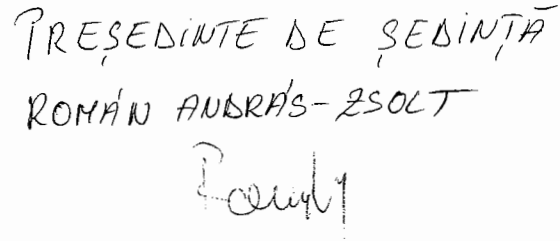 PREȘEDINTE DE ȘEDINȚĂ
ROMÁN ANDRÁS-ZSOLT